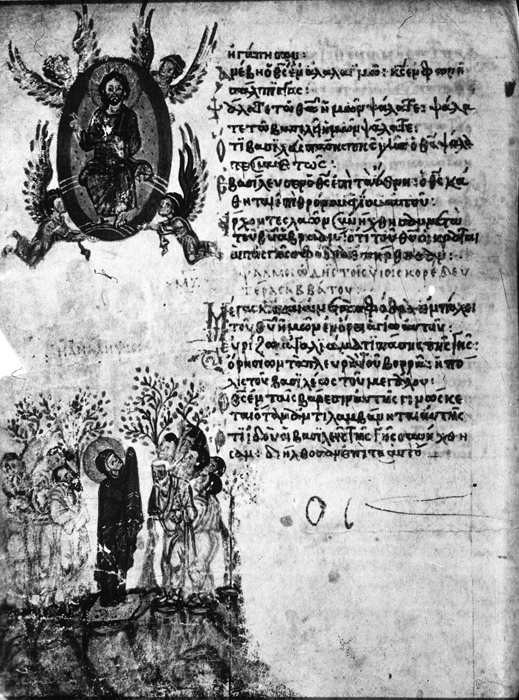 ἠγάπησεν:
Ἀνέβη ὁ θς ἐν ἀλαλαγμῶ: κς ἐν φωνῆ
σάλπιγγος:
Ψάλατε τῶ θω ἡμῶν ψάλατε: ψάλα
τε τῶ βασιλεῖ ἡμῶν ψάλατε:
Ὅτι βασιλεὺς πάσης τῆς γῆς ὁ θς ψάλα
τε συνετῶς:
Ἐβασίλευσεν ὁ θς ἐπὶ τὰ ἔθνη: ὁ θς κά
θηται ἐπὶ θρόνου ἁγίου αὐτοῦ:
Ἄρχοντες λαῶν συνήχθησαν μετὰ
τοῦ θυ ἀβραάμ: ὅτι τοῦ θυ οἱ κραταιοὶ
τῆς γῆς σφόδρα ἐπήρθησαν:
ΜΖ ΨΑΛΜΟΣ ΩΔΗΣ ΤΟΙΣ ΥΙΟΙΣ ΚΟΡΕ ΔΕΥ
ΤΕΡΑ ΣΑΒΒΑΤΟΥ:
Μέγας κς καὶ αἰνετὸς σφόδρα ἐν πόλει
τοῦ θυ ἡμῶν ἐν ὄρει ἁγίω αὐτοῦ:
Εὐρίζω ἀγαλλιάματι πάσης τῆς γῆς:
Ὄρη σιὼν τὰ πλευρὰ τοῦ βορρᾶ: ἡ πό
λις τοῦ βασιλέως τοῦ μεγάλου:
Ὁ θς ἐν ταῖς βάρεσιν αὐτῆς γινώσκε
ται ὅταν ἀντιλαμβάνηται αὐτῆς
Ὅτι ἰδοὺ οἱ βασιλεῖς τῆς γῆς συνήχθη
σαν: διήλθοσαν ἐπιτοαυτό